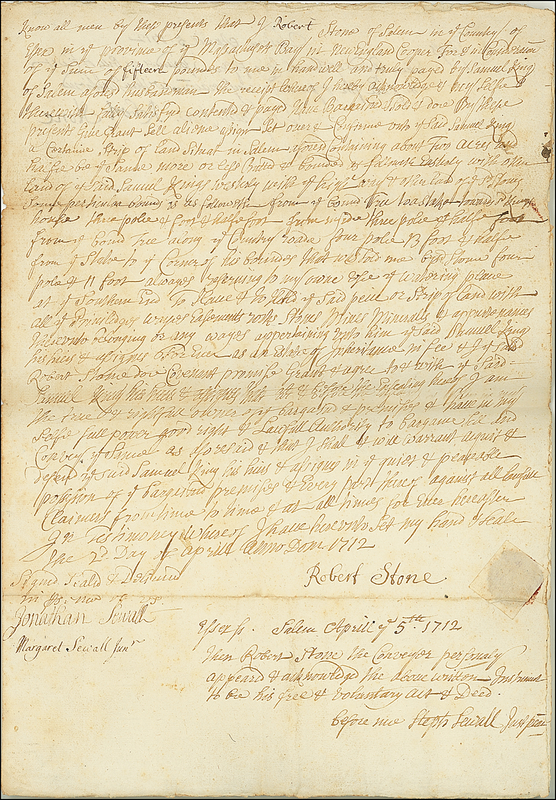 Know all men by these presents that I Robert Stone of Salem in ye Country of
Essex in ye province of ye Masachusets Bay in New England Cooper For & in Consideration
of ye Sume of fifteen pounds to me in hand well and truly payed by Samuel King
of Salem afores'd husbandman The receit whereof I hereby acknowledge & my selfe
therewith fully Satisfyd contented & payd Have Bargained Sold & doe By these
present Give Grant Sell aliene asign Set over & Confirme unto ye said Samuel King
a Certaine Strip of land Situat in Salem afores'd Containing about Two acres
be ye Same more or less Butted & bounded as followeth Easterly with other
land of ye s'd Samuel Kings Westerly with ye high way & other land of ye s'd
perticuler bounds is as followeth from ye bound tree to a stake towards s'd Kings
house three pole & foot & halfe foot from s'd three pole & halfe foot
from ye bound tree along ye Country roade four pole 13 foot & halfe
from ye Stake to ye Corner of the bounds that four
pole & 11 foot always reserving to my owne use ye watering place
at ye Southern End To Have & to Hold ye said peice or Strip of land with
all ye priviledges Wayes Easements with Stones Mines Minerals & appurtenances
thereunto belonging or any wayes appertaining unto him ye said Samuel King
his heirs & asignes for Ever as an Estate of Inheritance in fee & I ye said
Robert Stone doe Covenant promise Grant & agree to & with ye said
Samuel King his heirs & asignes that at & before the Ensealing hereof I am
the true & rightful owner of ye bargained & premises & have in my
Selfe full power good right & Lawfull Authority to bargaine sell and
Convey ye Samuel as aforesaid & that I shall & will warrant against &
defend ye said Samuel King his heirs & asigns in ye quiet & peaceable
posession of ye bargained premises & Every part thereof against all lawfull
Claimers from time to time & at all times for Ever hereafter
In Testimony Whereof I have hereunto Set my hand & seale
the 2d Day of Aprill Anno Dom 1712
Signed Seald & Delivered Robert Stone
in
Jonathan Sewall
Margaret Sewall Junr
Essex ss. Salem Aprill ye 5th 1712
Then Robert Stone the Conveyer personaly
appeard & acknowledgd the above written Instrument
to be his free & voluntary act & Deed.
before me Steph Sewall Just peace